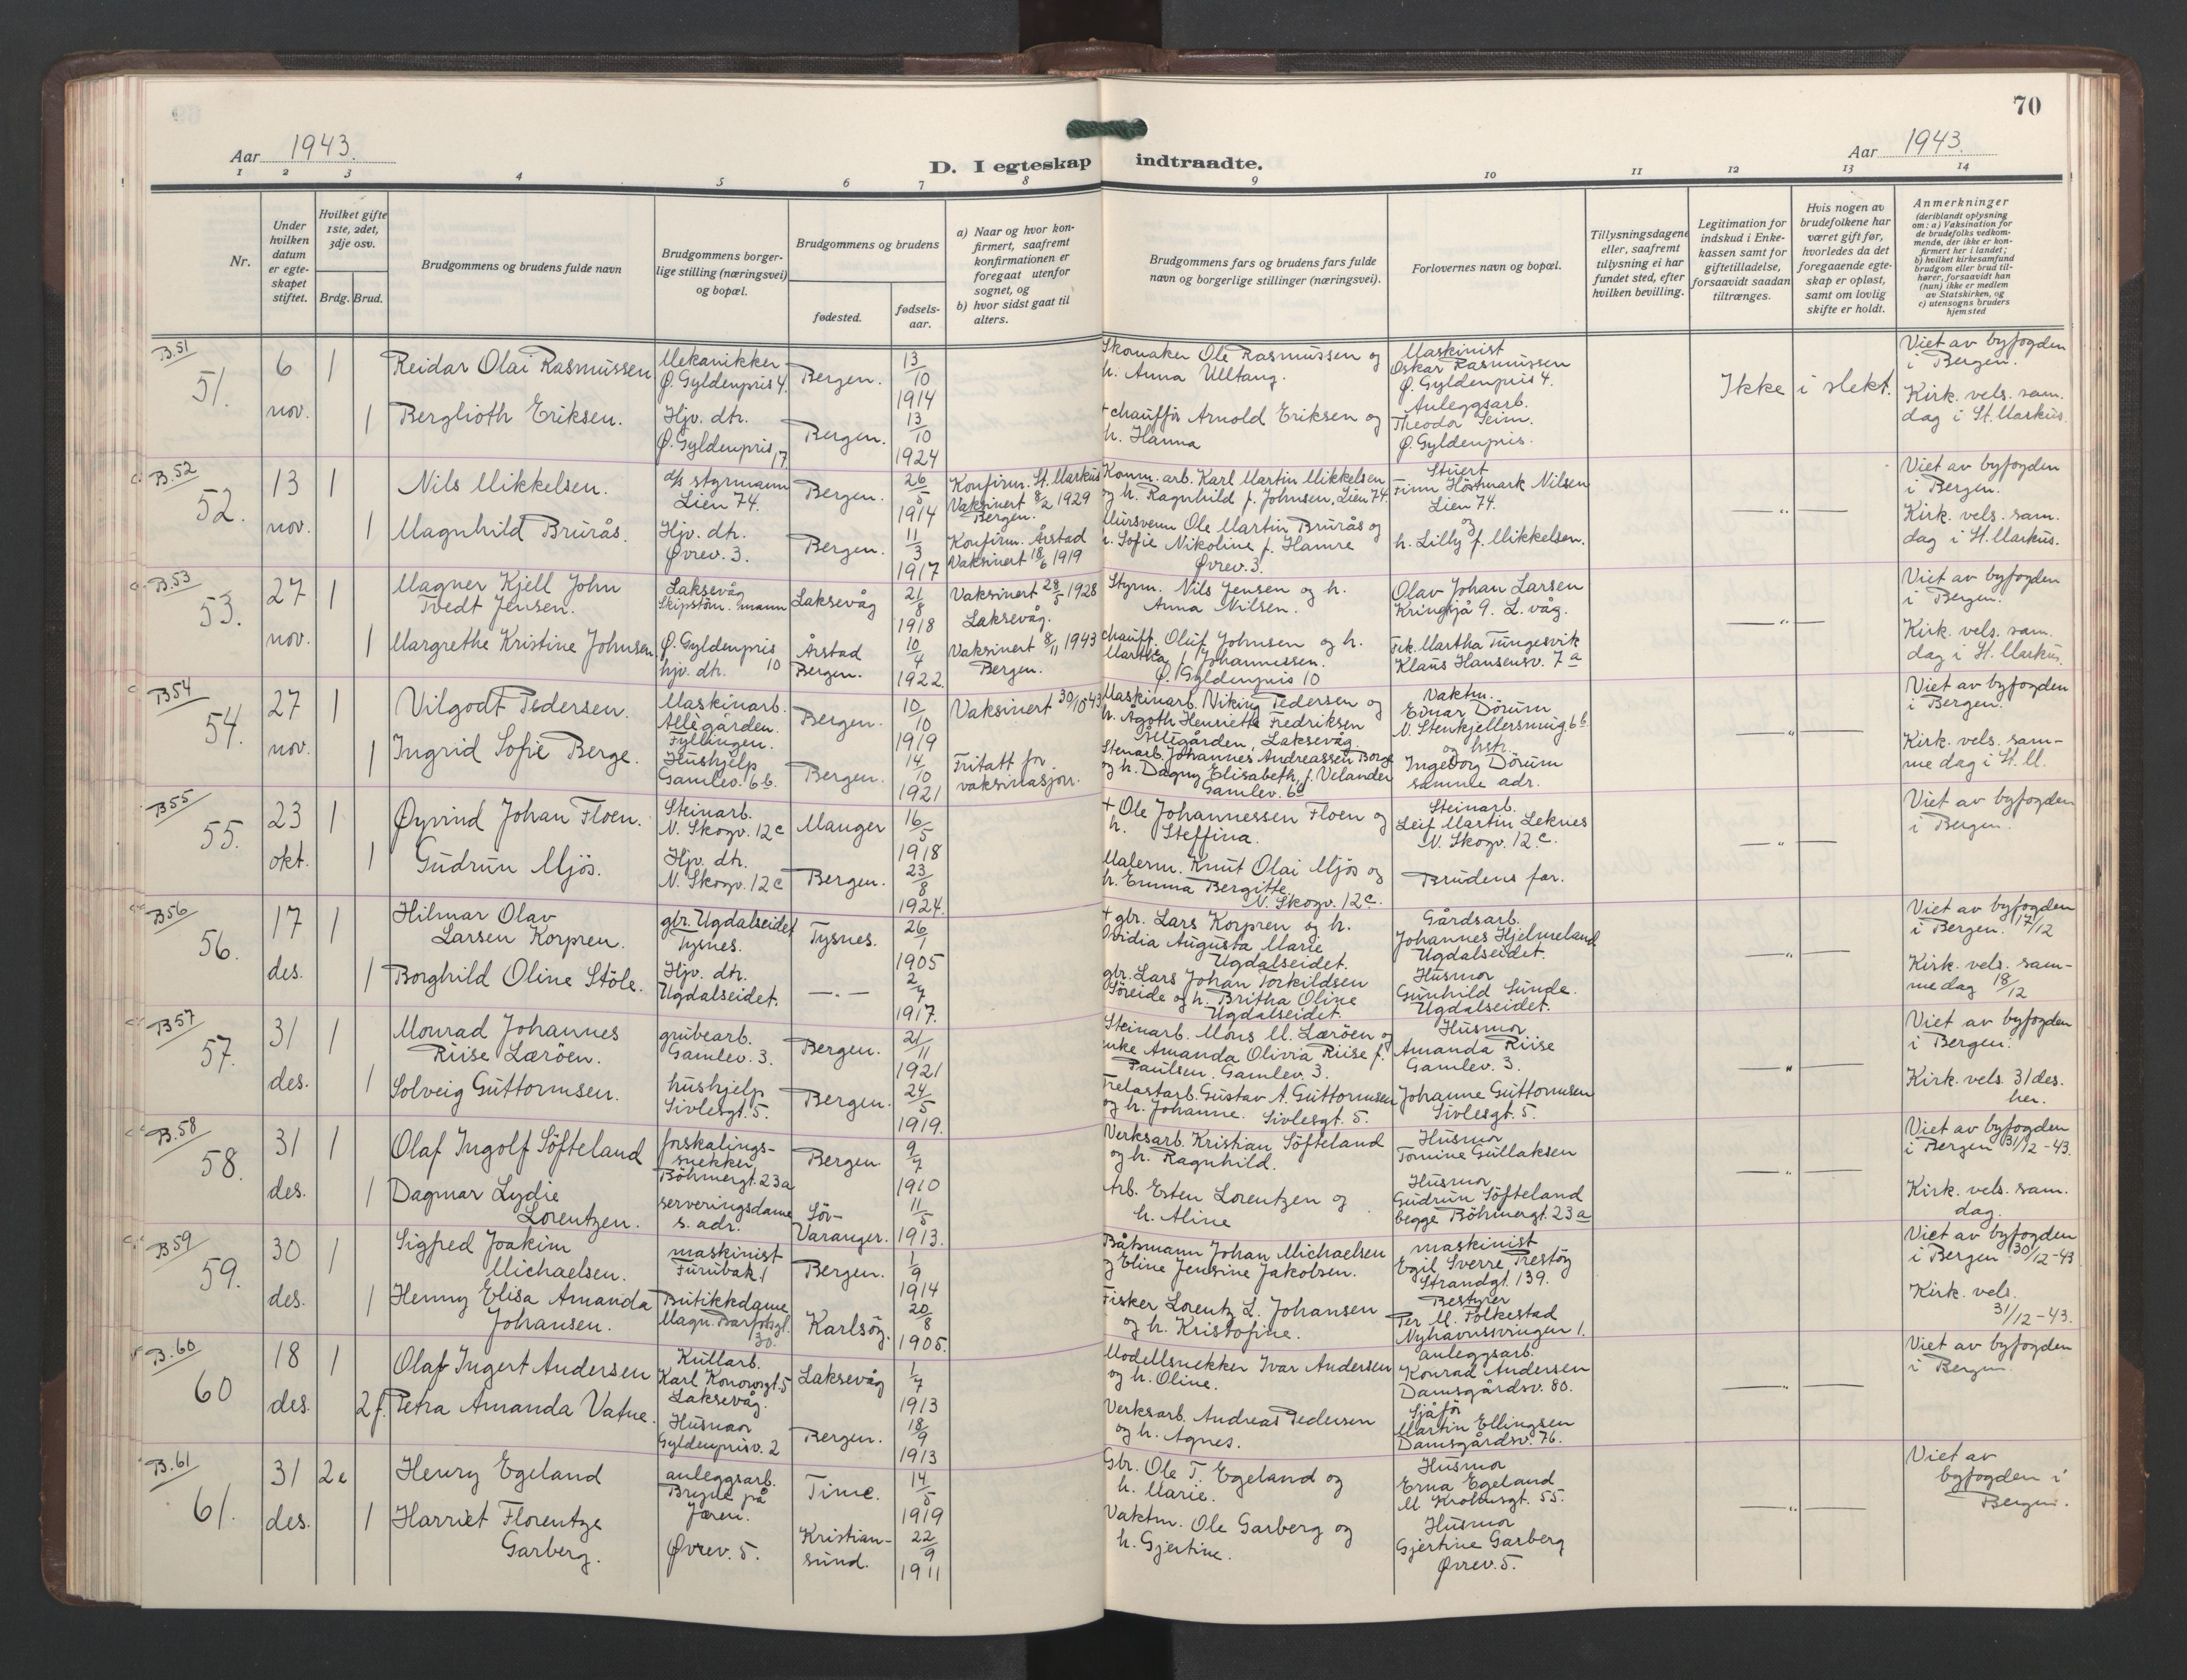 70
Aar 1943.
D. I egteskap indtraadte.
Aar 1943.
1 2 3 4 5 6 7 8 9 10 11 12 13 14
Nr.
Under hvilken datum er egteskapet stiftet.
Hvilket gifte 1ste, 2det, 3dje osv.
Brdg. Brud.
Brudgommens og brudens fulde navn
Brudgommens borgerlige stilling (næringsvei) og bopæl.
Brudgommens og brudens
fødested.
fødselsaar.
a) Naar og hvor konfirmert, saafremt konfirmationen er foregaat utenfor sognet, og
b) hvor sidst gaat til alters.
Brudgommens fars og brudens fars fulde navn og borgerlige stillinger (næringsvei).
Forlovernes navn og bopæl.
Tillysningsdagene eller, saafremt tillysning ei har fundet sted, efter hvilken bevilling.
Legitimation for indskud i Enkekassen samt for giftetilladelse, forsaavidt saadan tiltrænges.
Hvis nogen av brudefolkene har været gift før, hvorledes da det foregaaende egteskap er opløst, samt om lovlig skifte er holdt.
Anmerkninger
(deriblandt oplysning om: a) Vaksination for de brudefolks vedkommende, der ikke er konfirmert her i landet; b) hvilket kirkesamfund brudgom eller brud tilhører, forsaavidt han (hun) ikke er medlem av Statskirken, og c) utensogns bruders hjemsted
B.51
51.
6 nov.
1 Reidar Olai Rasmussen
Mekanikker
Ø. Gyldenpris 4.
Bergen.
13/10 1914
Skomaker Ole Rasmussen og
h. Anna Ulltang.
Maskinist
Oskar Rasmussen
Ø. Gyldenpris 4.
Ikke i slekt.
Viet av byfogden
i Bergen.
1 Berglioth Eriksen.
Hjv. dtr.
Ø. Gyldenpris 17
Bergen.
13/10 1924
+ chauffør Arnold Eriksen og
h. Hanna
Anleggsarb.
Theodor Seim.
Ø. Gyldenpris.
Kirk. vels. sam.
dag i St. Markus.
B.52
52.
13 nov.
1 Nils Mikkelsen.
d/s styrmann
Lien 74.
Bergen.
26/5 1914
Konfirm. St. Markus
Vaksinert 8/2 1929
Bergen.
Komm. arb. Karl Martin Mikkelsen
og h. Ragnhild f. Johnsen, Lien 74.
Stuert
Finn Höstmark Nilsen
Lien 74.
og
— „ —
Viet av byfogden
i Bergen.
1 Magnhild Brurås.
Hjv. dtr.
Øvrev. 3.
Bergen.
11/3 1917
Konfirm. Årstad
Vaksinert 18/6 1919
Mursvenn Ole Martin Brurås og
h. Sofie Nikoline f. Hamre
Øvrev. 3.
h. Lilly f. Mikkelsen.
Kirk. vels. sam.
dag i St. Markus.
B.53
53.
27 nov.
1 Magner Kjell John
Tvedt Jensen.
Laksevåg
Skipstöm. mann
Laksevåg
21/8 1918
Vaksinert 28/5 1928
Laksevåg.
Styrm. Nils Jensen og h.
Anna Nilsen.
Olav Johan Larsen
Kringsjå 9. L. våg.
— „ —
Viet av byfogden
i Bergen.
1 Margrethe Kristine Johnsen
Ø. Gyldenpris 10
hjv. dtr.
Årstad
Bergen.
10/4 1922.
Vaksinert 8/11 1943
Bergen.
chauff. Oluf Johnsen og h.
Martha Johannessen.
Ø. Gyldenpris 10
Frk. Martha Tungesvik
Klaus Hansensv. 7a
Kirk. vels. sam.
dag i St. Markus.
B54
54.
27 nov.
1 Vilgodt Pedersen.
Maskinarb.
Allégården.
Fyllingen.
Bergen.
10/10 1919
Vaksinert 30/10 43
Maskinarb. Viking Pedersen og
h. Ågoth Henriette Fredriksen
Allégården, Laksevåg.
Vaktm.
Einar Dörum
N. Stenkjellersmug 6b
og hstr.
— „ —
Viet av byfogden
i Bergen.
1 Ingrid Sofie Berge.
Hushjelp
Gamlev. 6b.
Bergen.
14/10 1921
Fritatt for
vaksinasjon.
Stenarb. Johannes Andreassen Borge
og h. Dagny Elisabeth, f. Velander
Gamlev. 6b
Ingeborg Dörum
samme adr.
Kirk. vels. sam-
me dag i St. M.
B55
55.
23 okt.
1 Øyvind Johan Floen.
Steinarb.
N. Skogv. 12c
Manger
16/5 1918
+ Ole Johannessen Floen og
h. Steffina.
Steinarb.
Leif Martin Leknes
N. Skogv. 12c.
— „ —
Viet av byfogden
i Bergen.
1 Gudrun Mjös.
Hjv. dtr.
N. Skogv. 12c
Bergen.
23/8 1924.
Malerm. Knut Olai Mjös og
h. Emma Bergitte.
N. Skogv. 12c.
Brudens far.
B56
56.
17 des.
1 Hilmar Olav
Larsen Korpren.
gbr. Ugdalseidet
Tysnes.
Tysnes.
26/1 1905
+ gbr. Lars Korpren og h.
Ovidia Augusta Marie
Ugdalseidet.
Gårdsarb.
Johannes Hjelmeland
Ugdalseidet.
— „ —
Viet av byfogden
i Bergen. 17/12
1 Borghild Oline Stöle.
Hjv. dtr.
Ugdalseidet.
— „ —
2/7 1917.
gbr. Lars Johan Torkildsen
Söreide og h. Britha Oline
Ugdalseidet.
Husmor
Gunhild Sunde.
Ugdalseidet.
Kirk. vels. sam-
me dag 18/12
B57
57.
31 des.
1 Monrad Johannes
Riise Læröen.
grubearb.
Gamlev. 3.
Bergen.
21/11 1921
Steinarb. Mons M. Læröen og
enke Amanda Olivia Riise f.
Paulsen. Gamlev. 3.
Husmor
Amanda Riise
Gamlev. 3.
— „ —
Viet av byfogden
i Bergen.
1 Solveig Guttormsen.
hushjelp
Sivlesgt. 5.
Bergen.
24/5 1919.
Trelastarb. Gustav A. Guttormsen
og h. Johanne. Sivlesgt. 5.
Johanne Guttormsen
Sivlesgt. 5.
Kirk. vels. 31 des.
her.
B.58
58.
31 des.
1 Olaf Ingolf Söfteland
forskalings-
snekker
Böhmergt. 23a
Bergen
9/7 1910
Verksarb. Kristian Söfteland
og h. Ragnhild.
Husmor
Tomine Gullaksen
— „ —
Viet av byfogden
i Bergen 31/12-43.
1 Dagmar Lydie
Lorentzen.
serveringsdame
s. adr.
Sör-
Varanger.
11/5 1913.
Arb. Esten Lorentzen og
h. Aline
Husmor
Gudrun Söfteland
begge Böhmergt. 23a
Kirk. vels. sam.
dag.
B59
59.
30 des.
1 Sigfred Joakim
Michaelsen.
maskinist
Furubak. 1
Bergen.
1/9 1914
Båtsmann Johan Michaelsen
og Eline Jensine Jakobsen.
maskinist
Egil Sverre Trestöy
Strandgt. 139.
Viet av byfogden
i Bergen 30/12-43
1 Henny Elisa Amanda
Johansen.
Butikkdame
Magn. Barfotsgt. 30.
Karlsöy.
20/8 1905.
Fisker Lorentz L. Johansen
og h. Kristofine.
Bestyrer
Per M. Folkestad
Nyhavnssvingen 1.
Kirk. vels.
31/12-43.
B.60
60
18 des.
1 Olaf Ingert Andersen
Kullarb.
Karl Konowsgt. 5
Laksevåg.
Laksevåg
1/7 1913
Modellsnekker Ivar Andersen
og h. Oline.
anleggsarb.
Konrad Andersen
Damsgårdsv. 80.
— „ —
Viet av byfogden
i Bergen.
2 f. Petra Amanda Vatne.
Husmor
Gyldenprisv. 2
Bergen.
18/9 1913
Verksarb. Andreas Pedersen
og h. Agnes.
Sjåför
Martin Ellingsen
Damsgårdsv. 76.
B.61
61.
31 des.
2e Henry Egeland
anleggsarb.
Bryne på
Jæren.
Time.
14/5 1919
Gbr. Ole T. Egeland og
h. Marie.
Husmor
Erna Egeland
M. Krohnsgt. 55.
— „ —
Viet av
byfogden i
Bergen.
1 Harriet Florentze
Garberg.
Øvrev. 5.
Kristian-
sund.
22/9 1911
Vaktm. Ole Garberg og
h. Gjertine.
Husmor
Gjertine Garberg
Øvrev. 5.